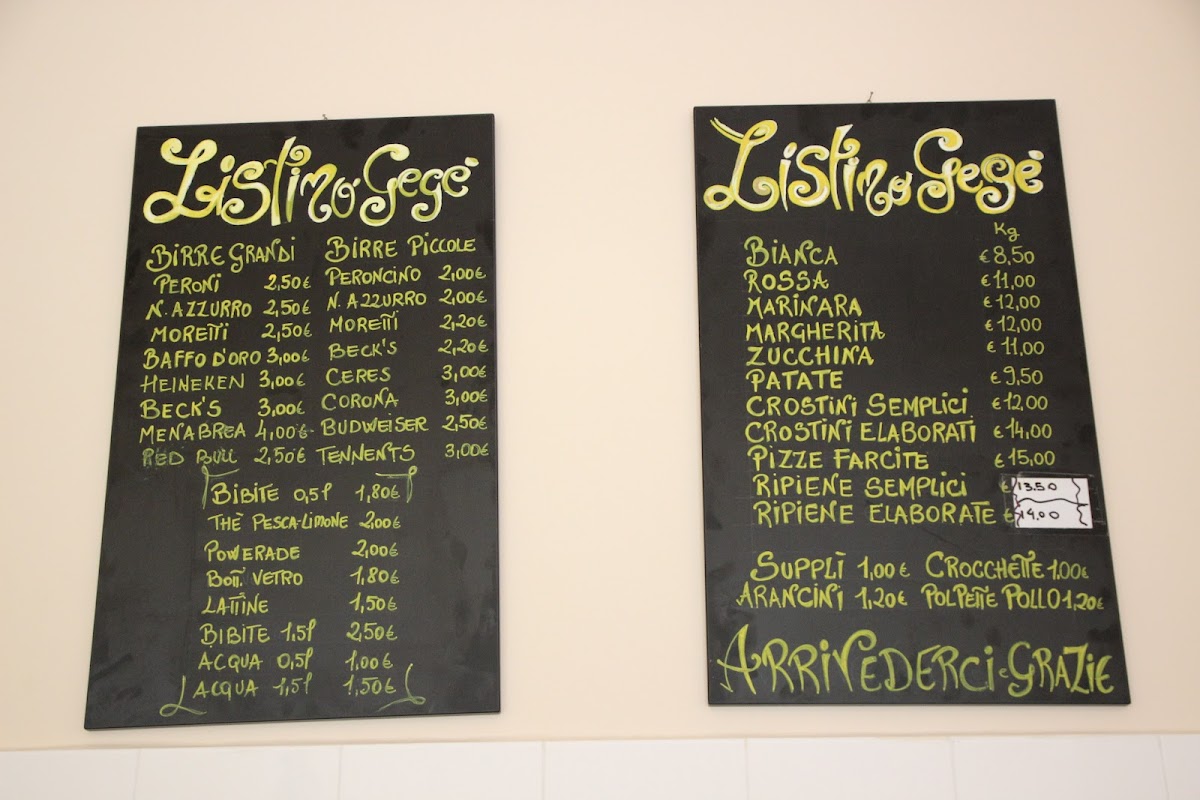 Listino Gegè
BIRRE GRANDI BIRRE PICCOLE
PERONI 2,50€ PERONCINO 2,00€
N. AZZURRO 2,50€ N. AZZURRO 2,00€
MORETTI 2,50€ MORETTI 2,20€
BAFFO D'ORO 3,00€ BECK'S 2,20€
HEINEKEN 3,00€ CERES 3,00€
BECK'S 3,00€ CORONA 3,00€
MENABREA 4,00€ BUDWEISER 2,50€
RED BULL 2,50€ TENNENTS 3,00€
BIBITE 0,5l 1,80€
THÈ PESCA-LIMONE 2,00€
POWERADE 2,00€
BOTT. VETRO 1,80€
LATTINE 1,50€
BIBITE 1,5l 2,50€
ACQUA 0,5l 1,00€
ACQUA 1,5l 1,50€
Listino Gegè
Kg
BIANCA €8,50
ROSSA €11,00
MARINARA €12,00
MARGHERITA €12,00
ZUCCHINA €11,00
PATATE €9,50
CROSTINI SEMPLICI €12,00
CROSTINI ELABORATI €14,00
PIZZE FARCITE €15,00
RIPIENE SEMPLICI €13.50
RIPIENE ELABORATE €14,00
SUPPLÌ 1,00€ CROCCHETTE 1.00€
ARANCINI 1,20€ POLPETTE POLLO 1,20€
ARRIVEDERCI e GRAZIE